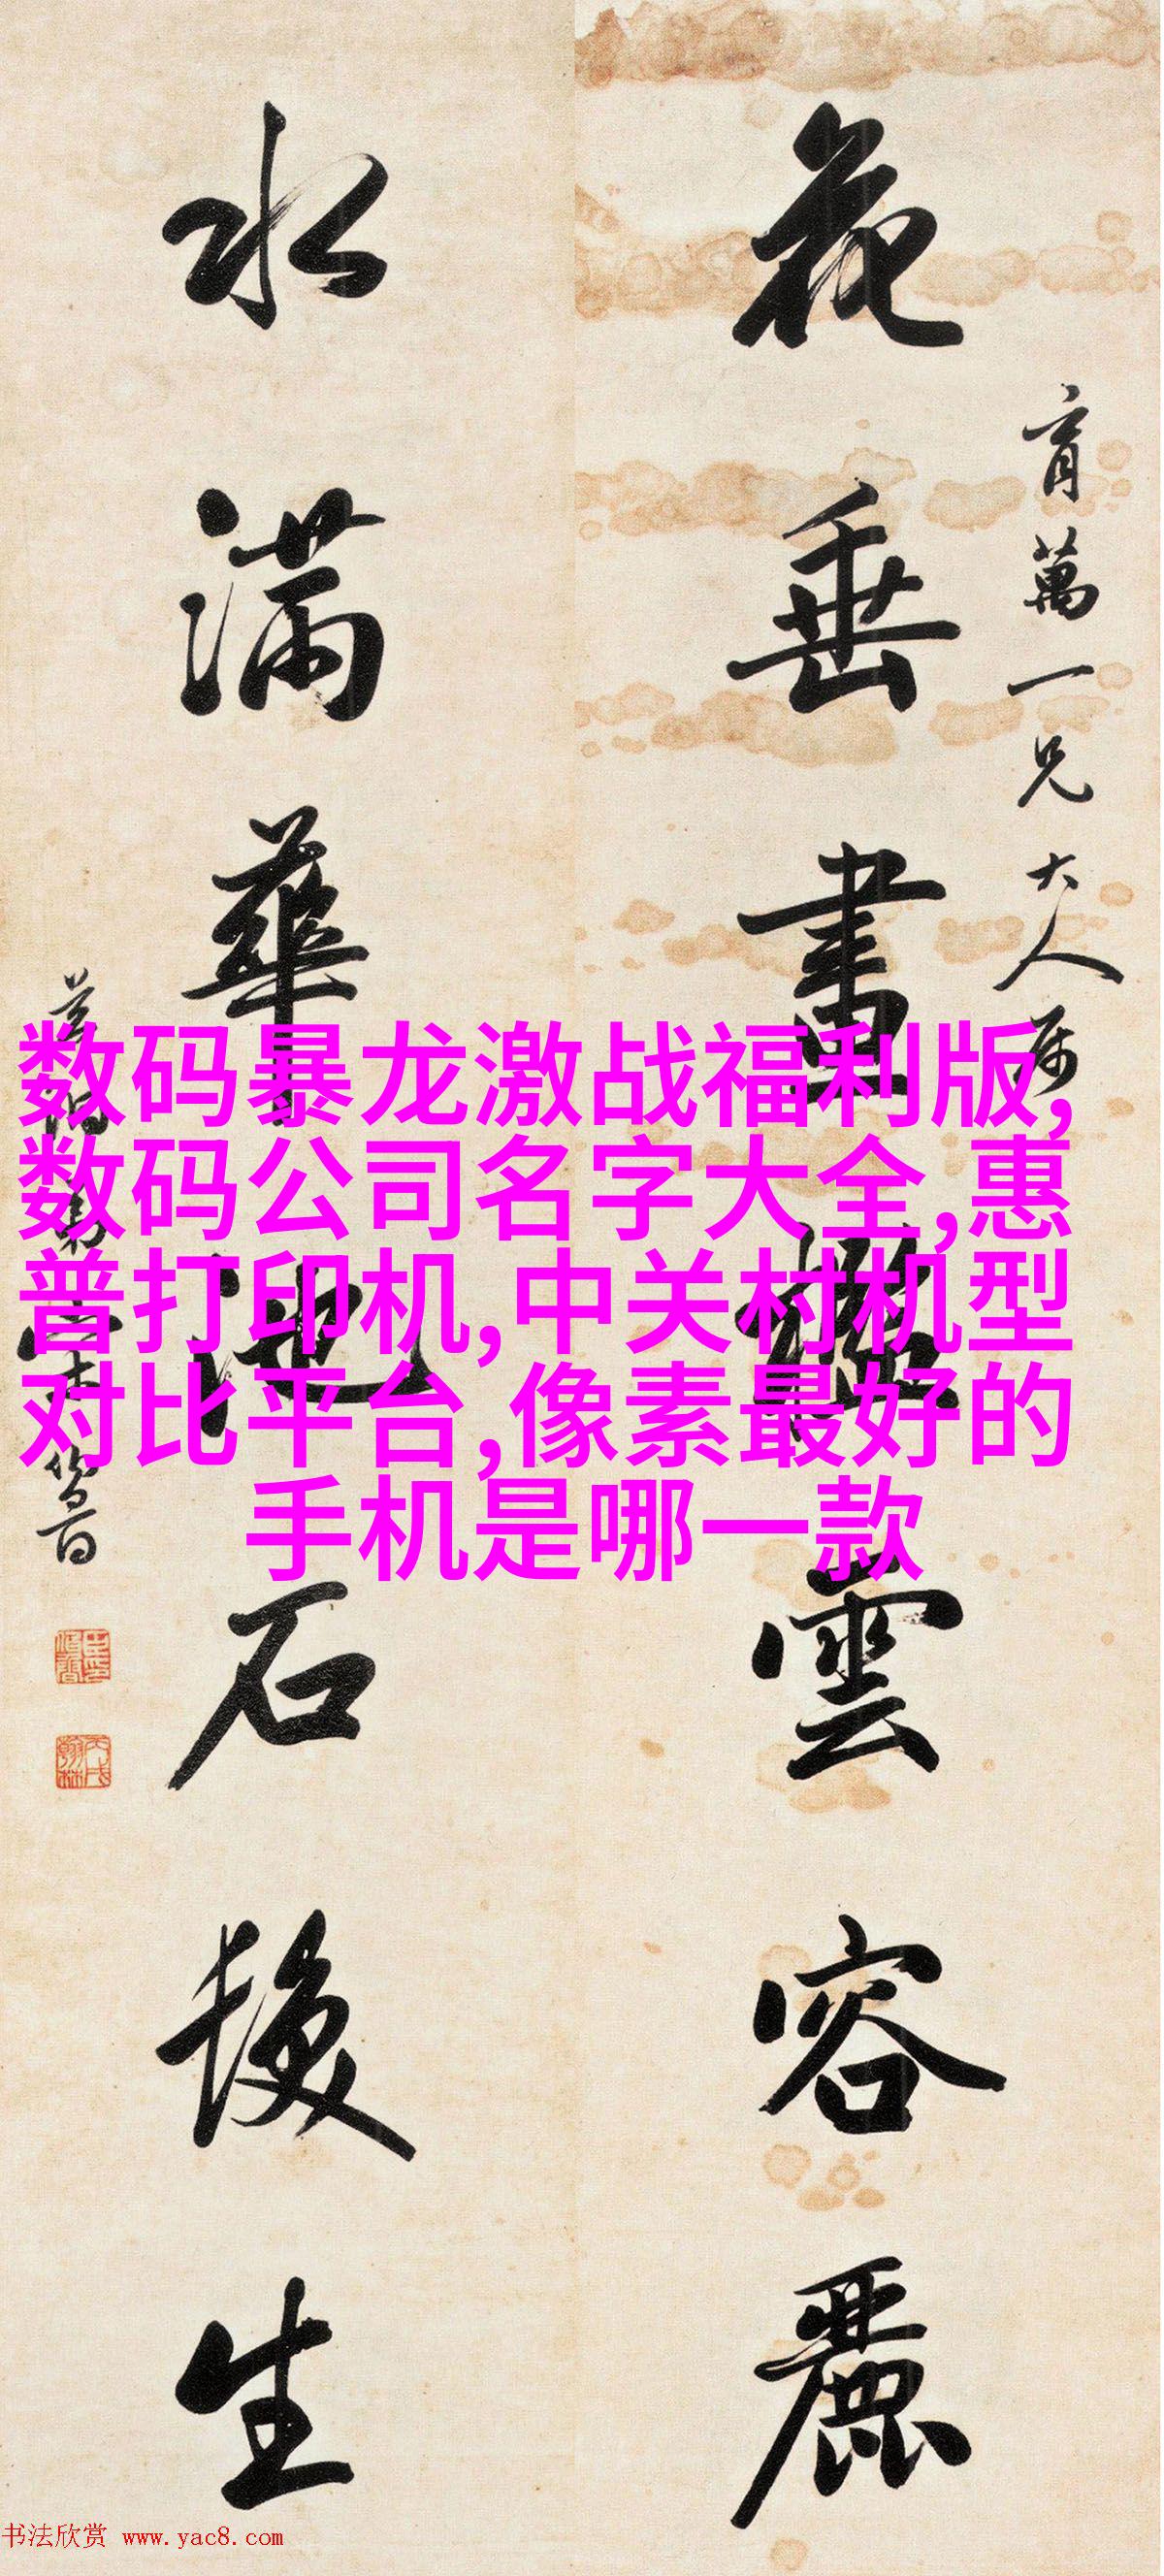 花垂畫檻雲容麗
育萬一兄大人属
水满華池石髮生
数码暴龙激战福利版,
数码公司名字大全,惠
普打印机,中关村机型
对比平台,像素最好的
手机是哪一款
书法欣赏 www.yac8.com